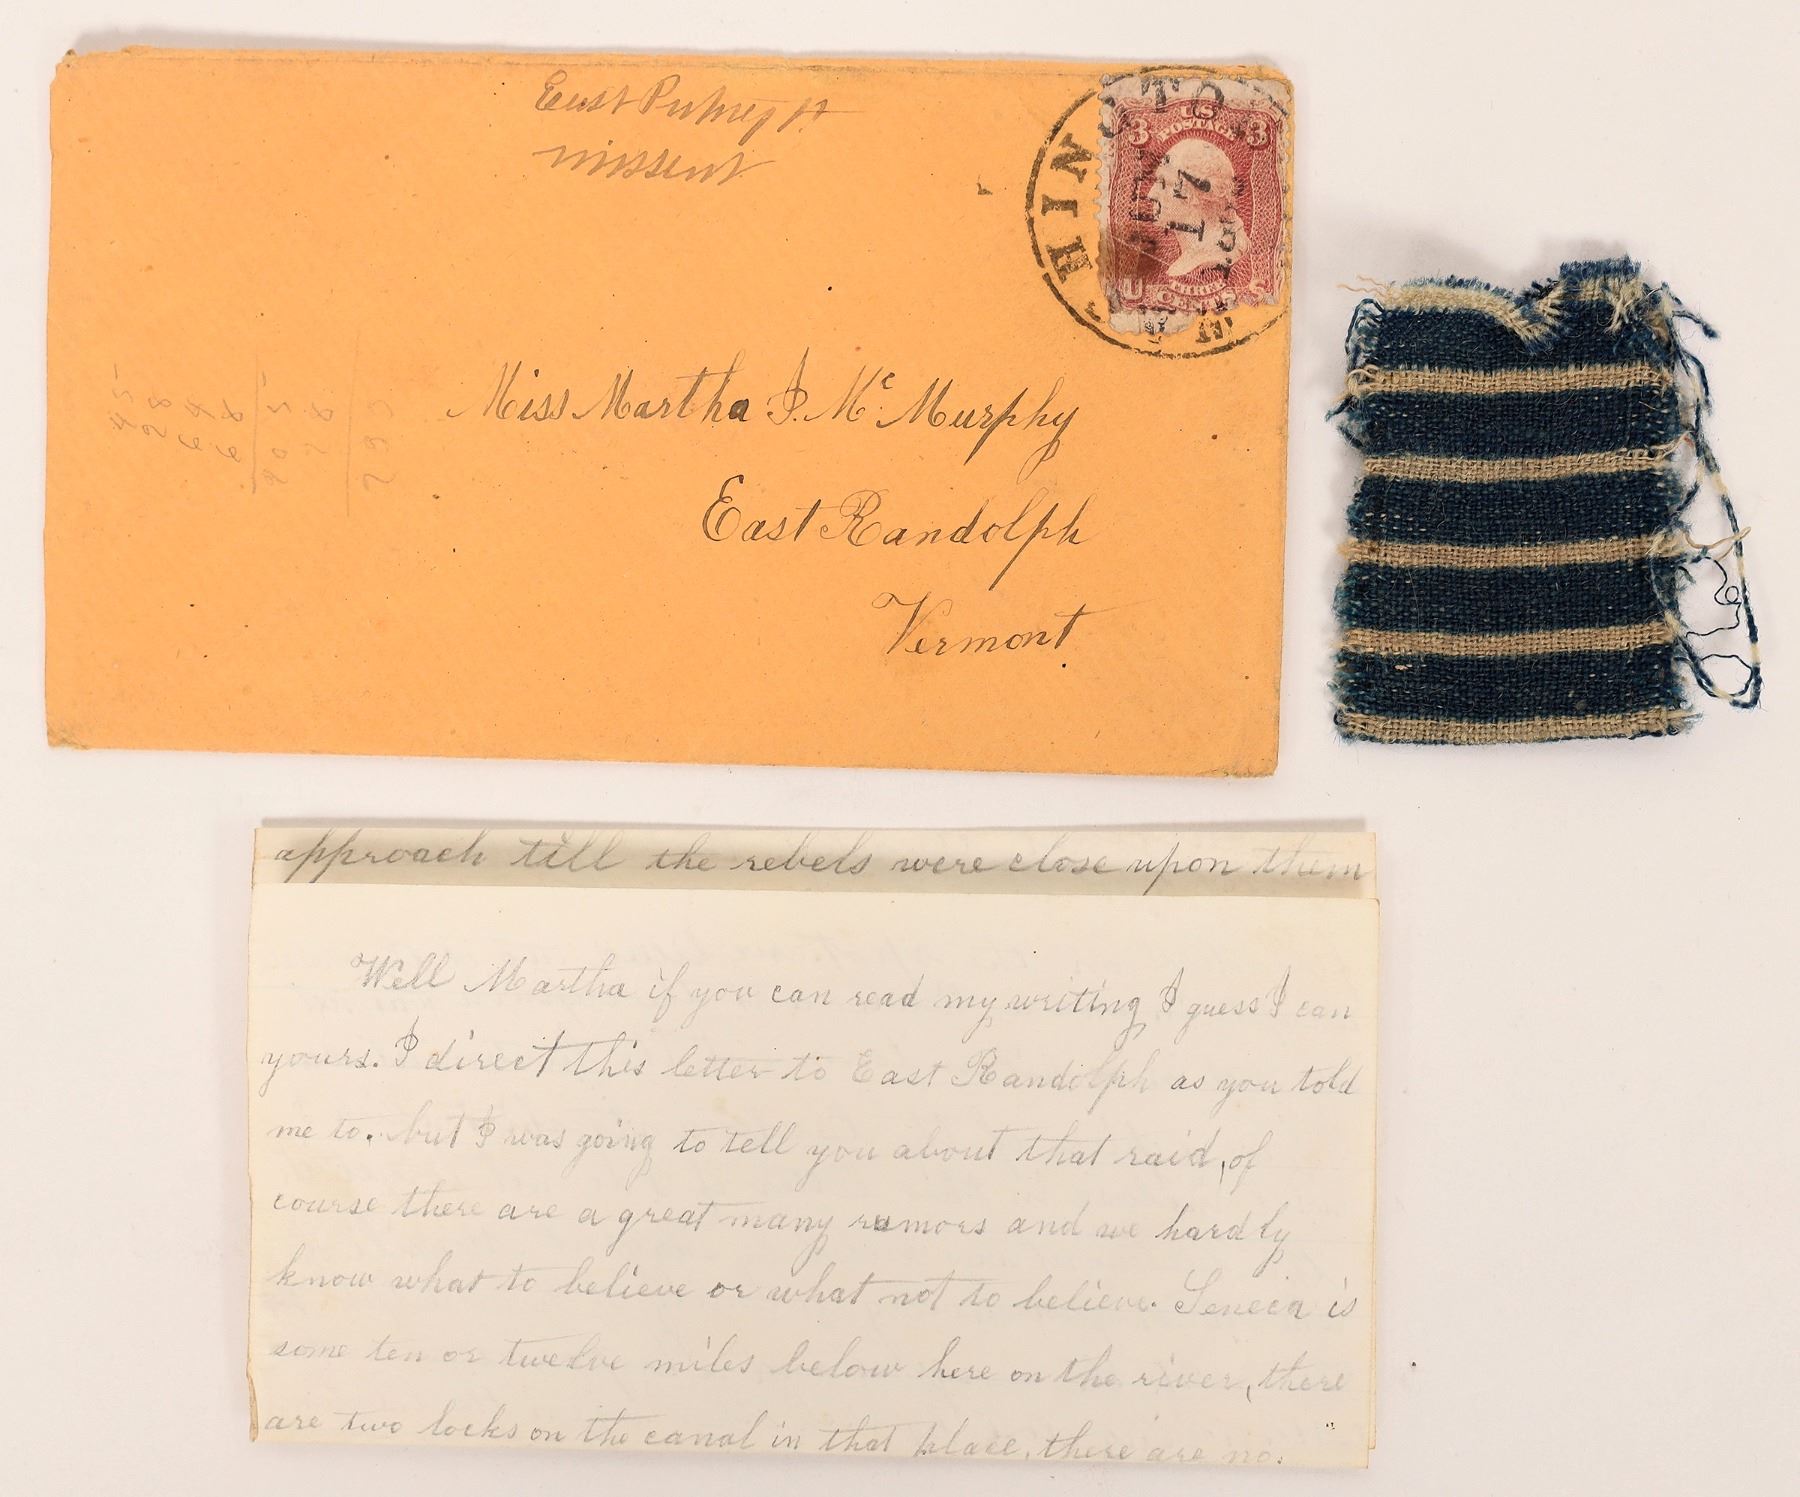 East Putney Vt
missent
HINGTO
US
POSTAGE
3 3
JUN
17
THREE
CENTS
U S
Miss Martha I. Mc Murphy
East Randolph
Vermont
approach till the rebels were close upon them
Well Martha if you can read my writing I guess I can
yours. I direct this letter to East Randolph as you told
me to. but I was going to tell you about that raid, of
course there are a great many rumors and we hardly
know what to believe or what not to believe. Seneca is
some ten or twelve miles below here on the river, there
are two locks on the canal in that place, there are no.